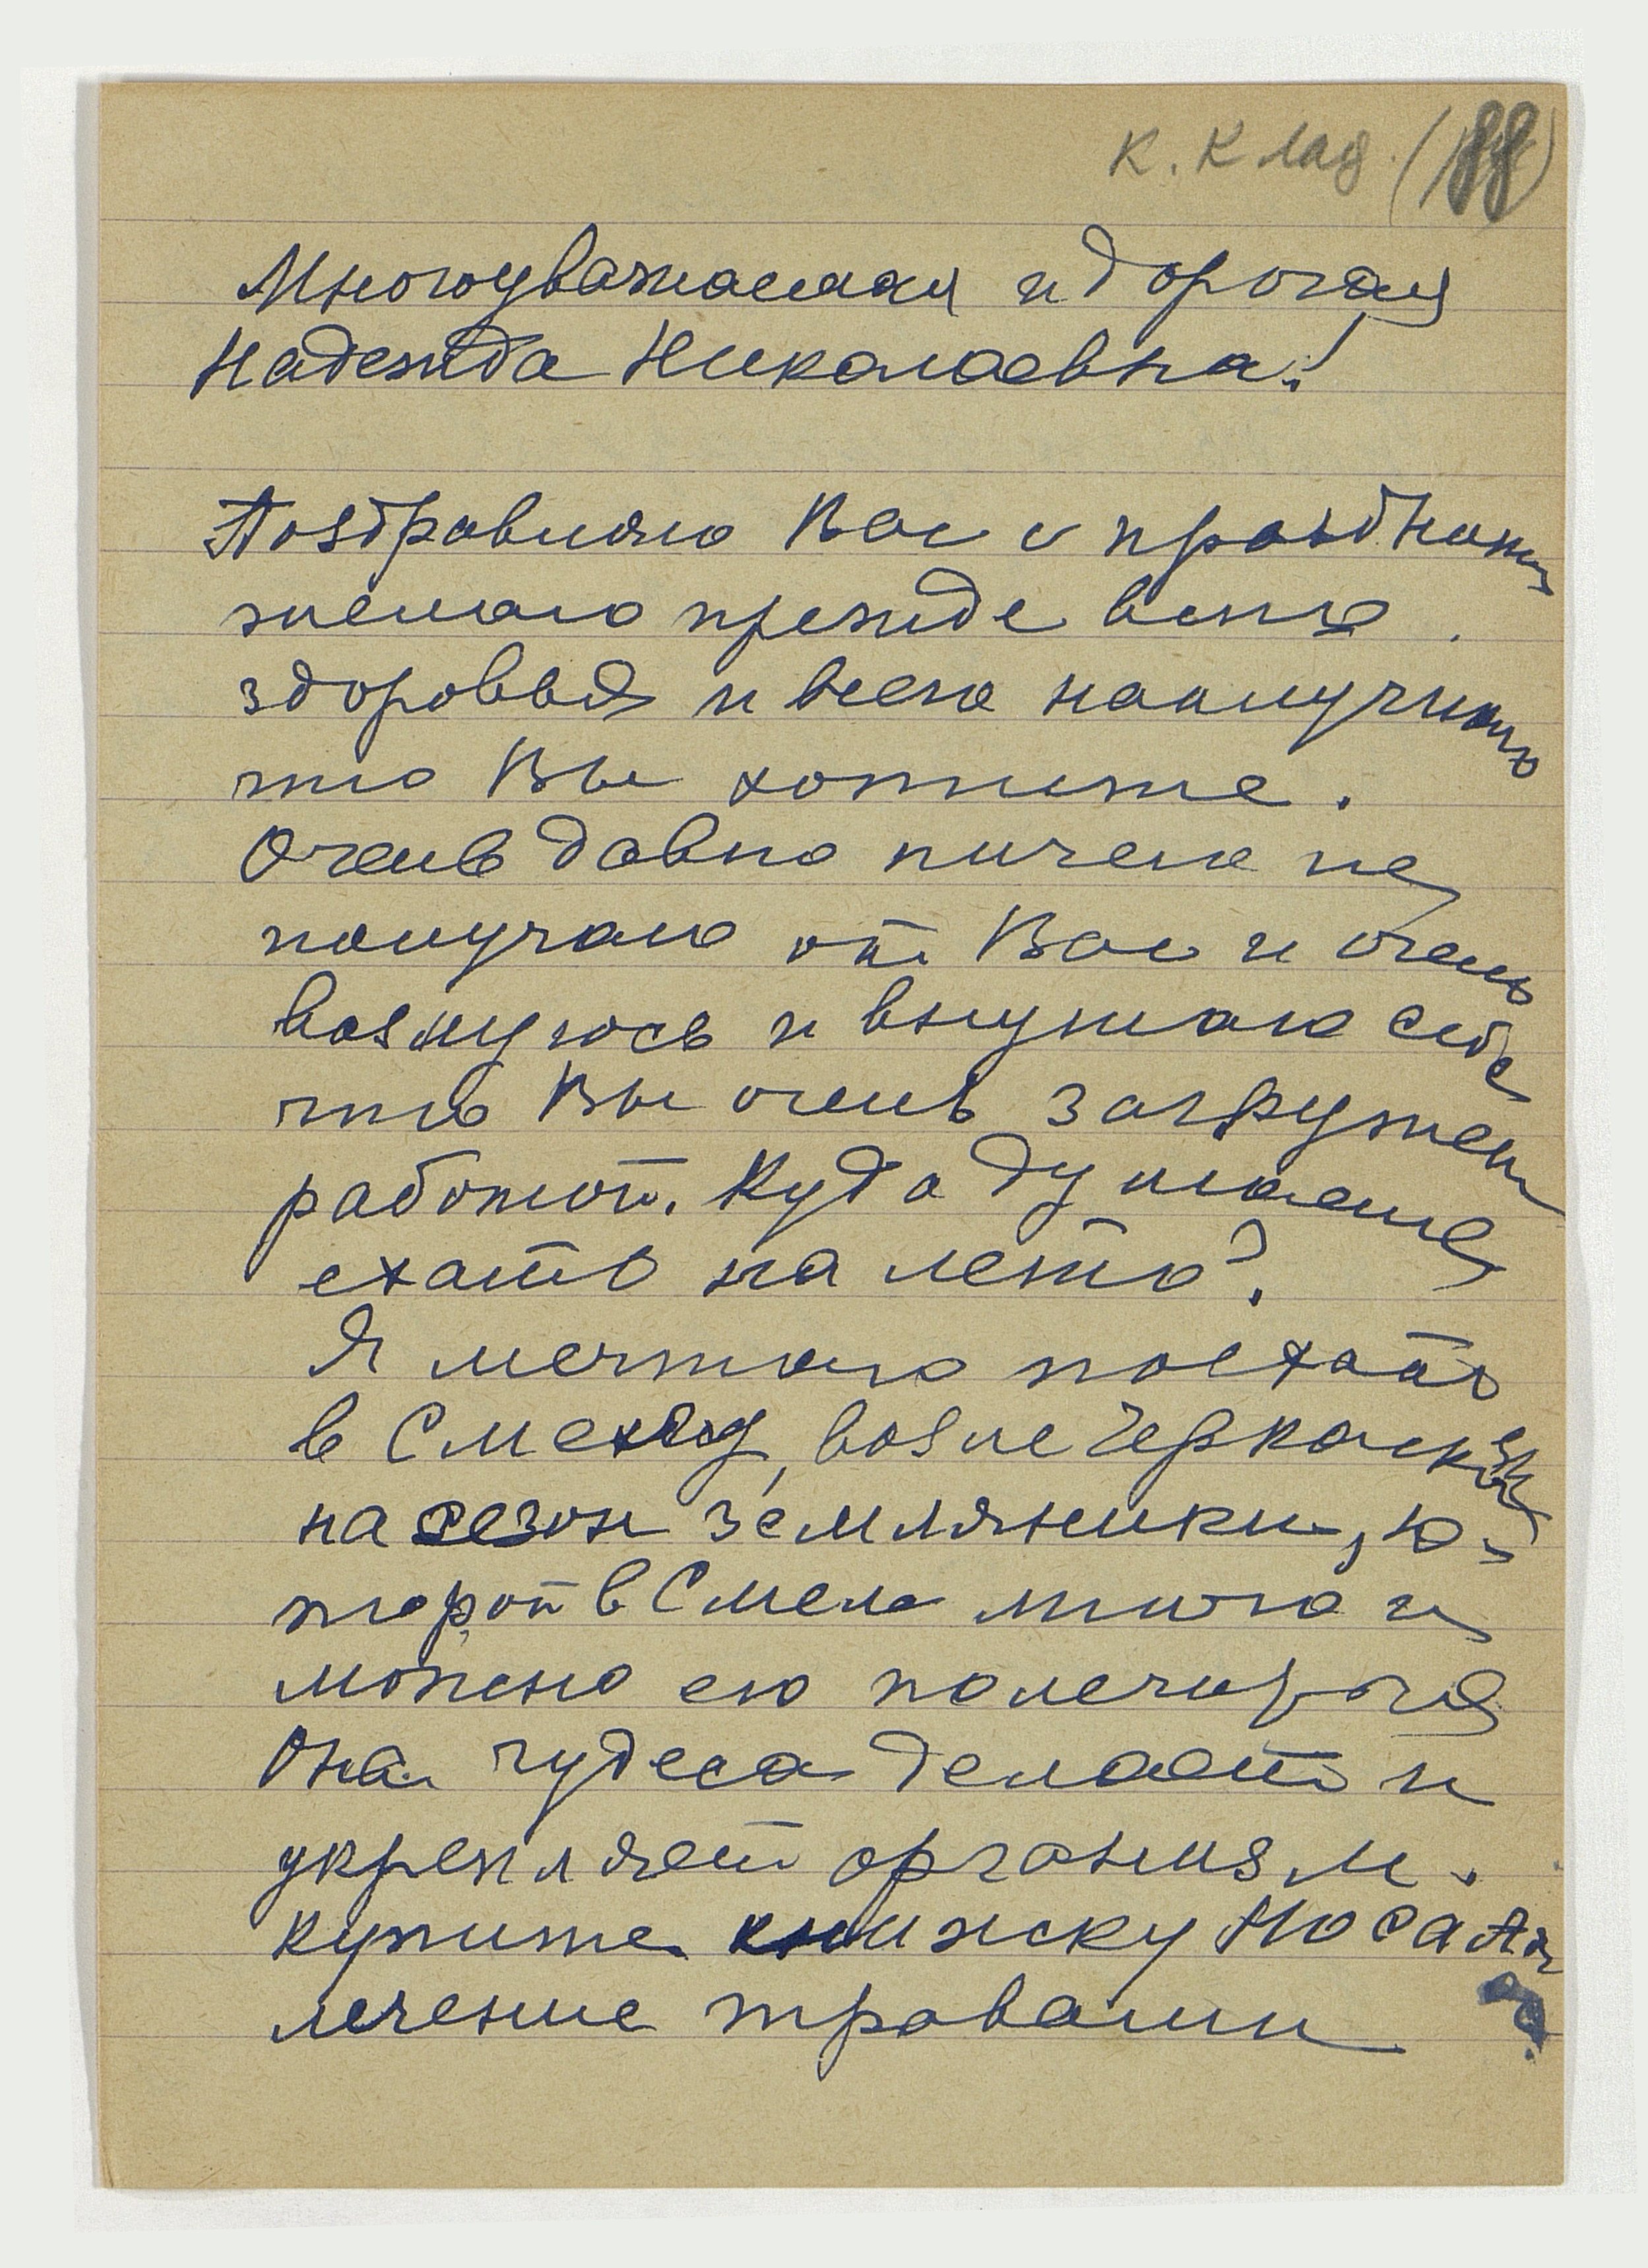 К. Клад. (188)
Многоуважаемая и дорогая
Надежда Николаевна!
Поздравляю Вас с праздником
желаю прежде всего
здоровья и всего наилучшего
что Вы хотите.
Очень давно ничего не
получаю от Вас и очень
волнуюсь и внушаю себе
что Вы очень загружены
работой. Куда думаете
ехать на лето?
Я мечтаю поехать
в Смелу, возле Черкасск
на сезон земляники, ко-
торой в Смеле много и
можно ею полечиться
Она чудеса делает и
укрепляет организм.
Купите книжку Носаля
лечение травами